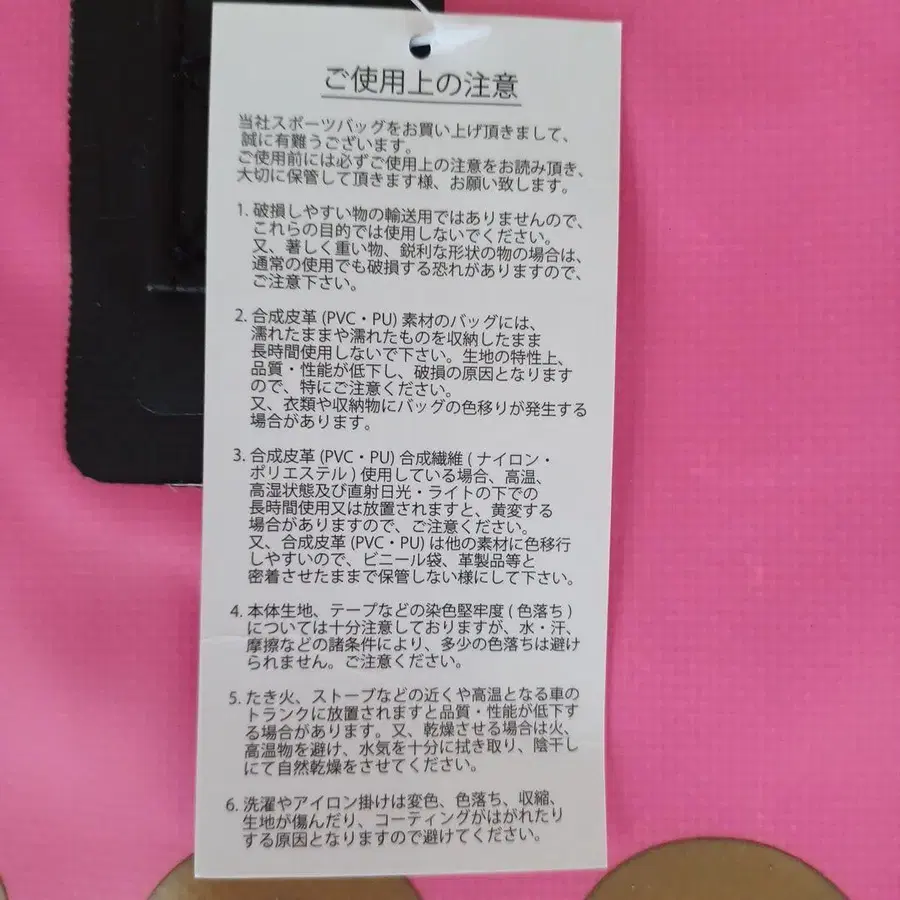 ご使用上の注意
当社スポーツバッグをお買い上げ頂きまして、
誠に有難うございます。
ご使用前には必ずご使用上の注意をお読み頂き、
大切に保管して頂きます様、お願い致します。
1. 破損しやすい物の輸送用ではありませんので、
これらの目的では使用しないでください。
又、著しく重い物、鋭利な形状の物の場合は、
通常の使用でも破損する恐れがありますので、
ご注意下さい。
2. 合成皮革 (PVC・PU) 素材のバッグには、
濡れたままや濡れたものを収納したまま
長時間使用しないで下さい。生地の特性上、
品質・性能が低下し、破損の原因となります
ので、特にご注意ください。
又、衣類や収納物にバッグの色移りが発生する
場合があります。
3. 合成皮革 (PVC・PU) 合成繊維 ( ナイロン・
ポリエステル ) 使用している場合、高温、
高湿状態及び直射日光・ライトの下での
長時間使用又は放置されますと、黄変する
場合がありますので、ご注意ください。
又、合成皮革 (PVC・PU) は他の素材に色移行
しやすいので、ビニール袋、革製品等と
密着させたままで保管しない様にして下さい。
4. 本体生地、テープなどの染色堅牢度 ( 色落ち )
については十分注意しておりますが、水・汗、
摩擦などの諸条件により、多少の色落ちは避け
られません。ご注意ください。
5. たき火、ストーブなどの近くや高温となる車の
トランクに放置されますと品質・性能が低下す
る場合があります。又、乾燥させる場合は火、
高温物を避け、水気を十分に拭き取り、陰干し
にて自然乾燥をさせてください。
6. 洗濯やアイロン掛けは変色、色落ち、収縮、
生地が傷んだり、コーティングがはがれたり
する原因となりますので避けてください。